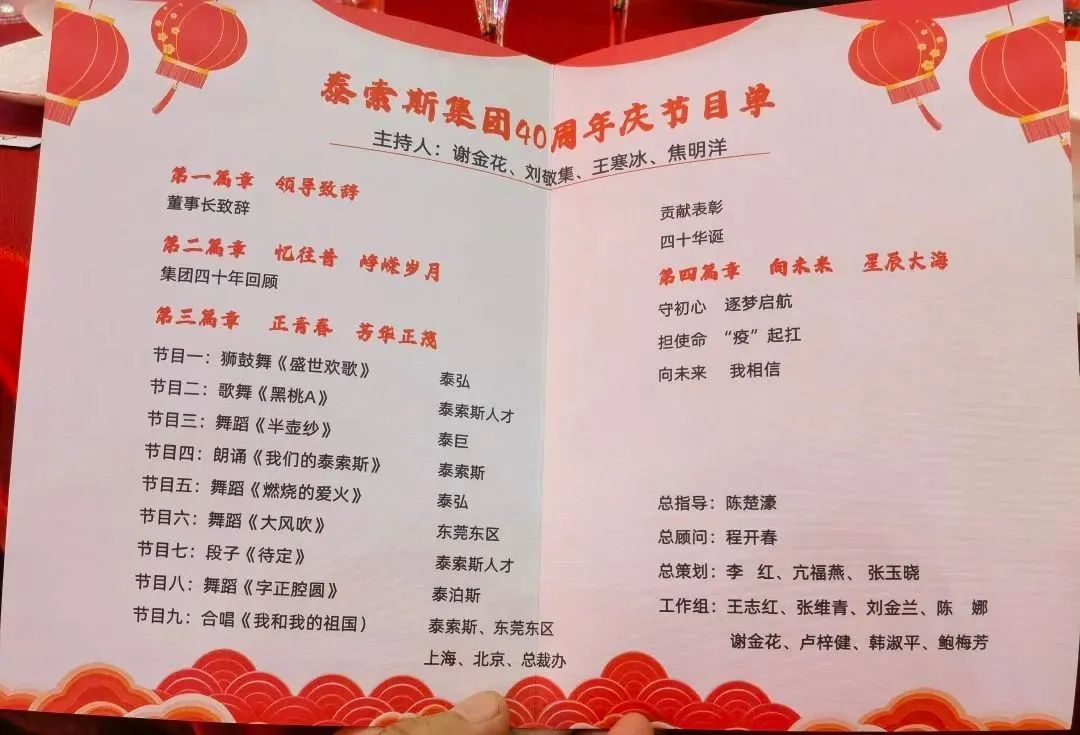 泰索斯集团40周年庆节目单
主持人：谢金花、刘敬集、王寒冰、焦明洋
第一篇章 领导致辞
董事长致辞
第二篇章 忆往昔 峥嵘岁月
集团四十年回顾
第三篇章 正青春 芳华正茂
节目一：狮鼓舞《盛世欢歌》 泰弘
节目二：歌舞《黑桃A》 泰索斯人才
节目三：舞蹈《半壶纱》 泰巨
节目四：朗诵《我们的泰索斯》 泰索斯
节目五：舞蹈《燃烧的爱火》 泰弘
节目六：舞蹈《大风吹》 东莞东区
节目七：段子《待定》 泰索斯人才
节目八：舞蹈《字正腔圆》 泰泊斯
节目九：合唱《我和我的祖国） 泰索斯、东莞东区
上海、北京、总裁办
贡献表彰
四十华诞
第四篇章 向未来 星辰大海
守初心 逐梦启航
担使命 “疫”起扛
向未来 我相信
总指导：陈楚濠
总顾问：程开春
总策划：李 红、亢福燕、张玉晓
工作组：王志红、张维青、刘金兰、陈 娜
谢金花、卢梓健、韩淑平、鲍梅芳